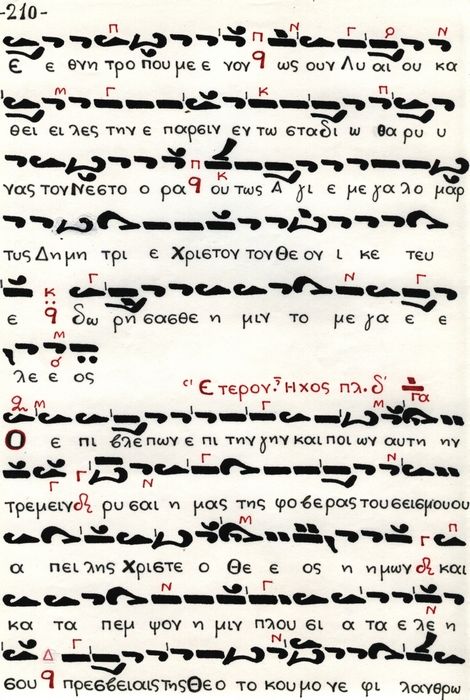 -210-
ε ε θνη τρο που με ε γον ως ουν Λυ αι ου κα
θει ει λες την ε παρσιν εν τω σταδι ω θα ρυ υ
νας τον Νεστο ο ρα ου τως Α γι ε με γα λο μαρ
τυς Δη μη τρι ε Χριστον τον Θε ον ι κε τευ
ε δω ρη σασθε η μιν το με γα ε ε
λε ε ος
Ετερον. Ηχος πλ. δ' Γα
Ο ε πι βλε πων ε πι την γην και ποι ων αυτη ην
τρεμειν ρυ σαι η μας της φο βερας του σεισμου ου
α πει λης Χριστε ο Θε ε ος η ημων και
κα τα πεμ ψον η μιν πλου σι α τα ε λε η
σου πρεσβειαις της Θεο το κου μο νε φι λανθρω